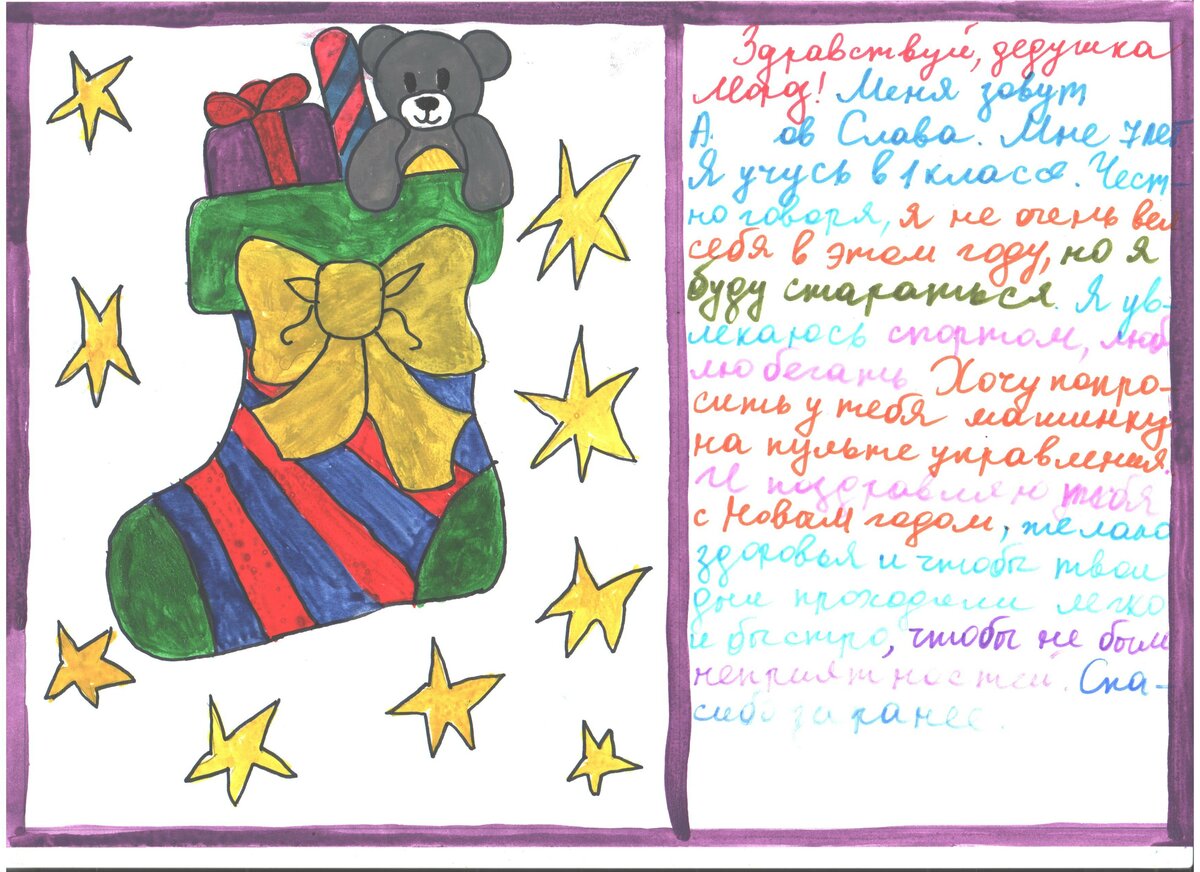 Здравствуй, дедушка
Мороз! Меня зовут
А ов Слава. Мне 7 лет
Я учусь в 1 классе. Чест-
но говоря, я не очень вел
себя в этом году, но я
буду стараться. Я ув-
лекаюсь спортом, люб
лю бегать. Хочу попро-
сить у тебя машинку
на пульте управления.
И поздравляю тебя
с Новым годом, желаю
здоровья и чтобы твои
дни проходили легко
и быстро, чтобы не было
неприятностей. Спа-
сибо заранее.